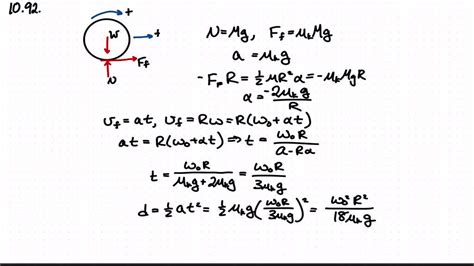 10.92.
+
W
+
F_f
N
N=Mg, F_f=μ_kMg
a=μ_kg
-F_fR=½MR²α=-μ_kMgR
α=-2μ_kg/R
v_f=at, v_f=Rω=R(ω₀+αt)
at=R(ω₀+αt)⇒t=ω₀R/(a-Rα)
t=ω₀R/(μ_kg+2μ_kg)=ω₀R/(3μ_kg)
d=½at²=½μ_kg(ω₀R/(3μ_kg))²=ω₀²R²/(18μ_kg)